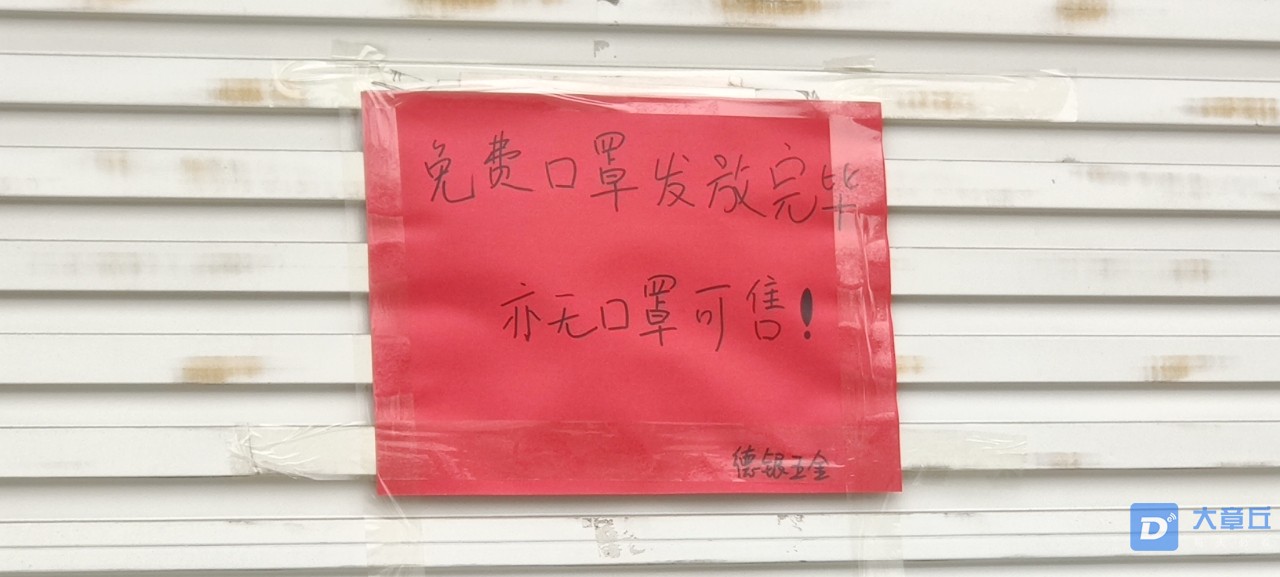 免费口罩发放完毕
亦无口罩可售!
德银五金
D 大章丘